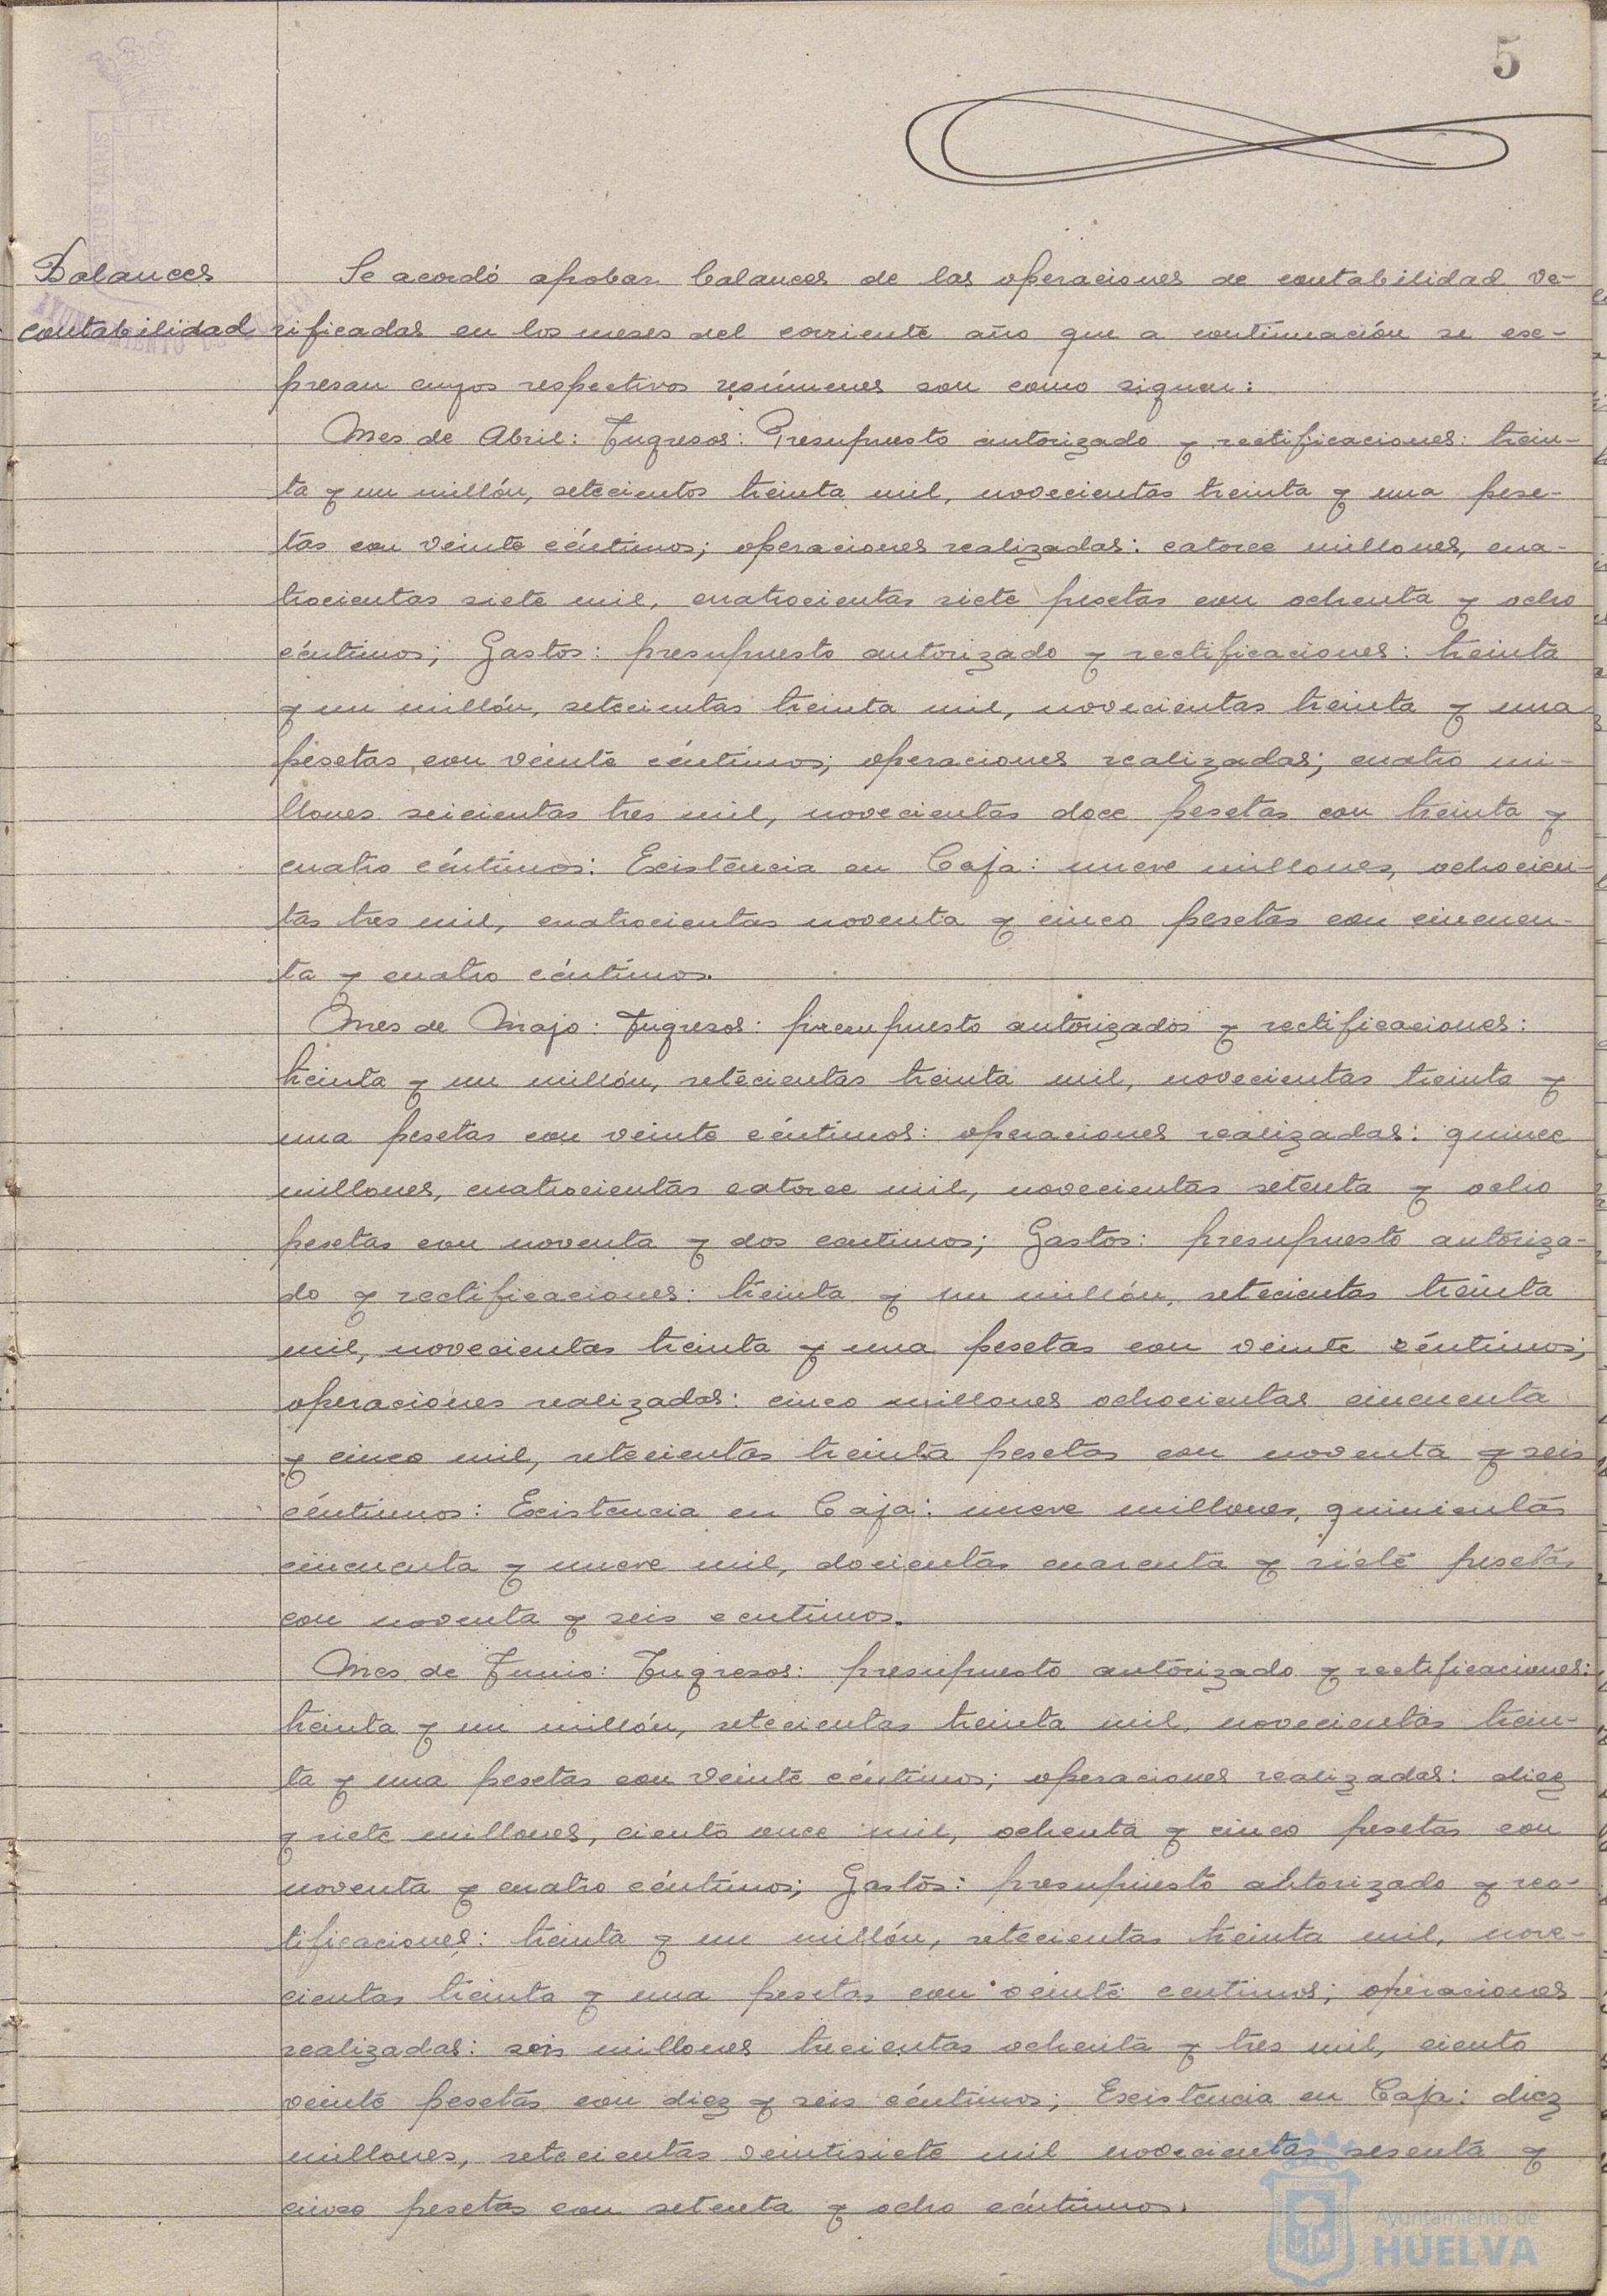 5
Balances
contabilidad
Se acordó aprobar balances de las operaciones de contabilidad ve-
rificadas en los meses del corriente año que a continuación se esc-
presan cuyos respectivos resúmenes son como siguen:
Mes de Abril: Ingresos: Presupuesto autorizado y rectificaciones: trein-
ta y un millón, setecientos treinta mil, novecientas treinta y una pese-
tas con veinte céntimos; operaciones realizadas: catorce millones, cua-
trocientas siete mil, cuatrocientas siete pesetas con ochenta y ocho
céntimos; Gastos: presupuesto autorizado y rectificaciones: treinta
y un millón, setecientas treinta mil, novecientas treinta y una
pesetas con veinte céntimos; operaciones realizadas; cuatro mi-
llones seicientas tres mil, novecientas doce pesetas con treinta y
cuatro céntimos: Escistencia en Caja: nueve millones, ochocien-
tas tres mil, cuatrocientas noventa y cinco pesetas con cincuen-
ta y cuatro céntimos.
Mes de Majo: Ingresos: presupuesto autorizados y rectificaciones:
treinta y un millón, setecientas treinta mil, novecientas treinta y
una pesetas con veinte céntimos: operaciones realizadas: quince
millones, cuatrocientas catorce mil, novecientas setenta y ocho
pesetas con noventa y dos centimos; Gastos: presupuesto autoriza-
do y rectificaciones: treinta y un millón, setecientas treinta
mil, novecientas treinta y una pesetas con veinte céntimos;
operaciones realizadas: cinco millones ochocientas cincuenta
y cinco mil, setecientas treinta pesetas con noventa y seis
céntimos: Escistencia en Caja: nueve millones, quinientas
cincuenta y nueve mil, docientas cuarenta y siete pesetas
con noventa y seis centimos.
Mes de Junio: Ingresos: presupuesto autorizado y rectificaciones:
treinta y un millón, setecientas treinta mil, novecientas trein-
ta y una pesetas con veinte céntimos; operaciones realizadas: diez
y siete millones, ciento once mil, ochenta y cinco pesetas con
noventa y cuatro céntimos; Gastos: presupuesto autorizado y rec-
tificaciones: treinta y un millón, setecientas treinta mil, nove-
cientas treinta y una pesetas con veinte centimos; operaciones
realizadas: seis millones trecientas ochenta y tres mil, ciento
veinte pesetas con diez y seis céntimos; Escistencia en Caja: diez
millones, setecientas veintisiete mil novecientas sesenta y
cinco pesetas con setenta y ocho céntimos.
Ayuntamiento de
HUELVA